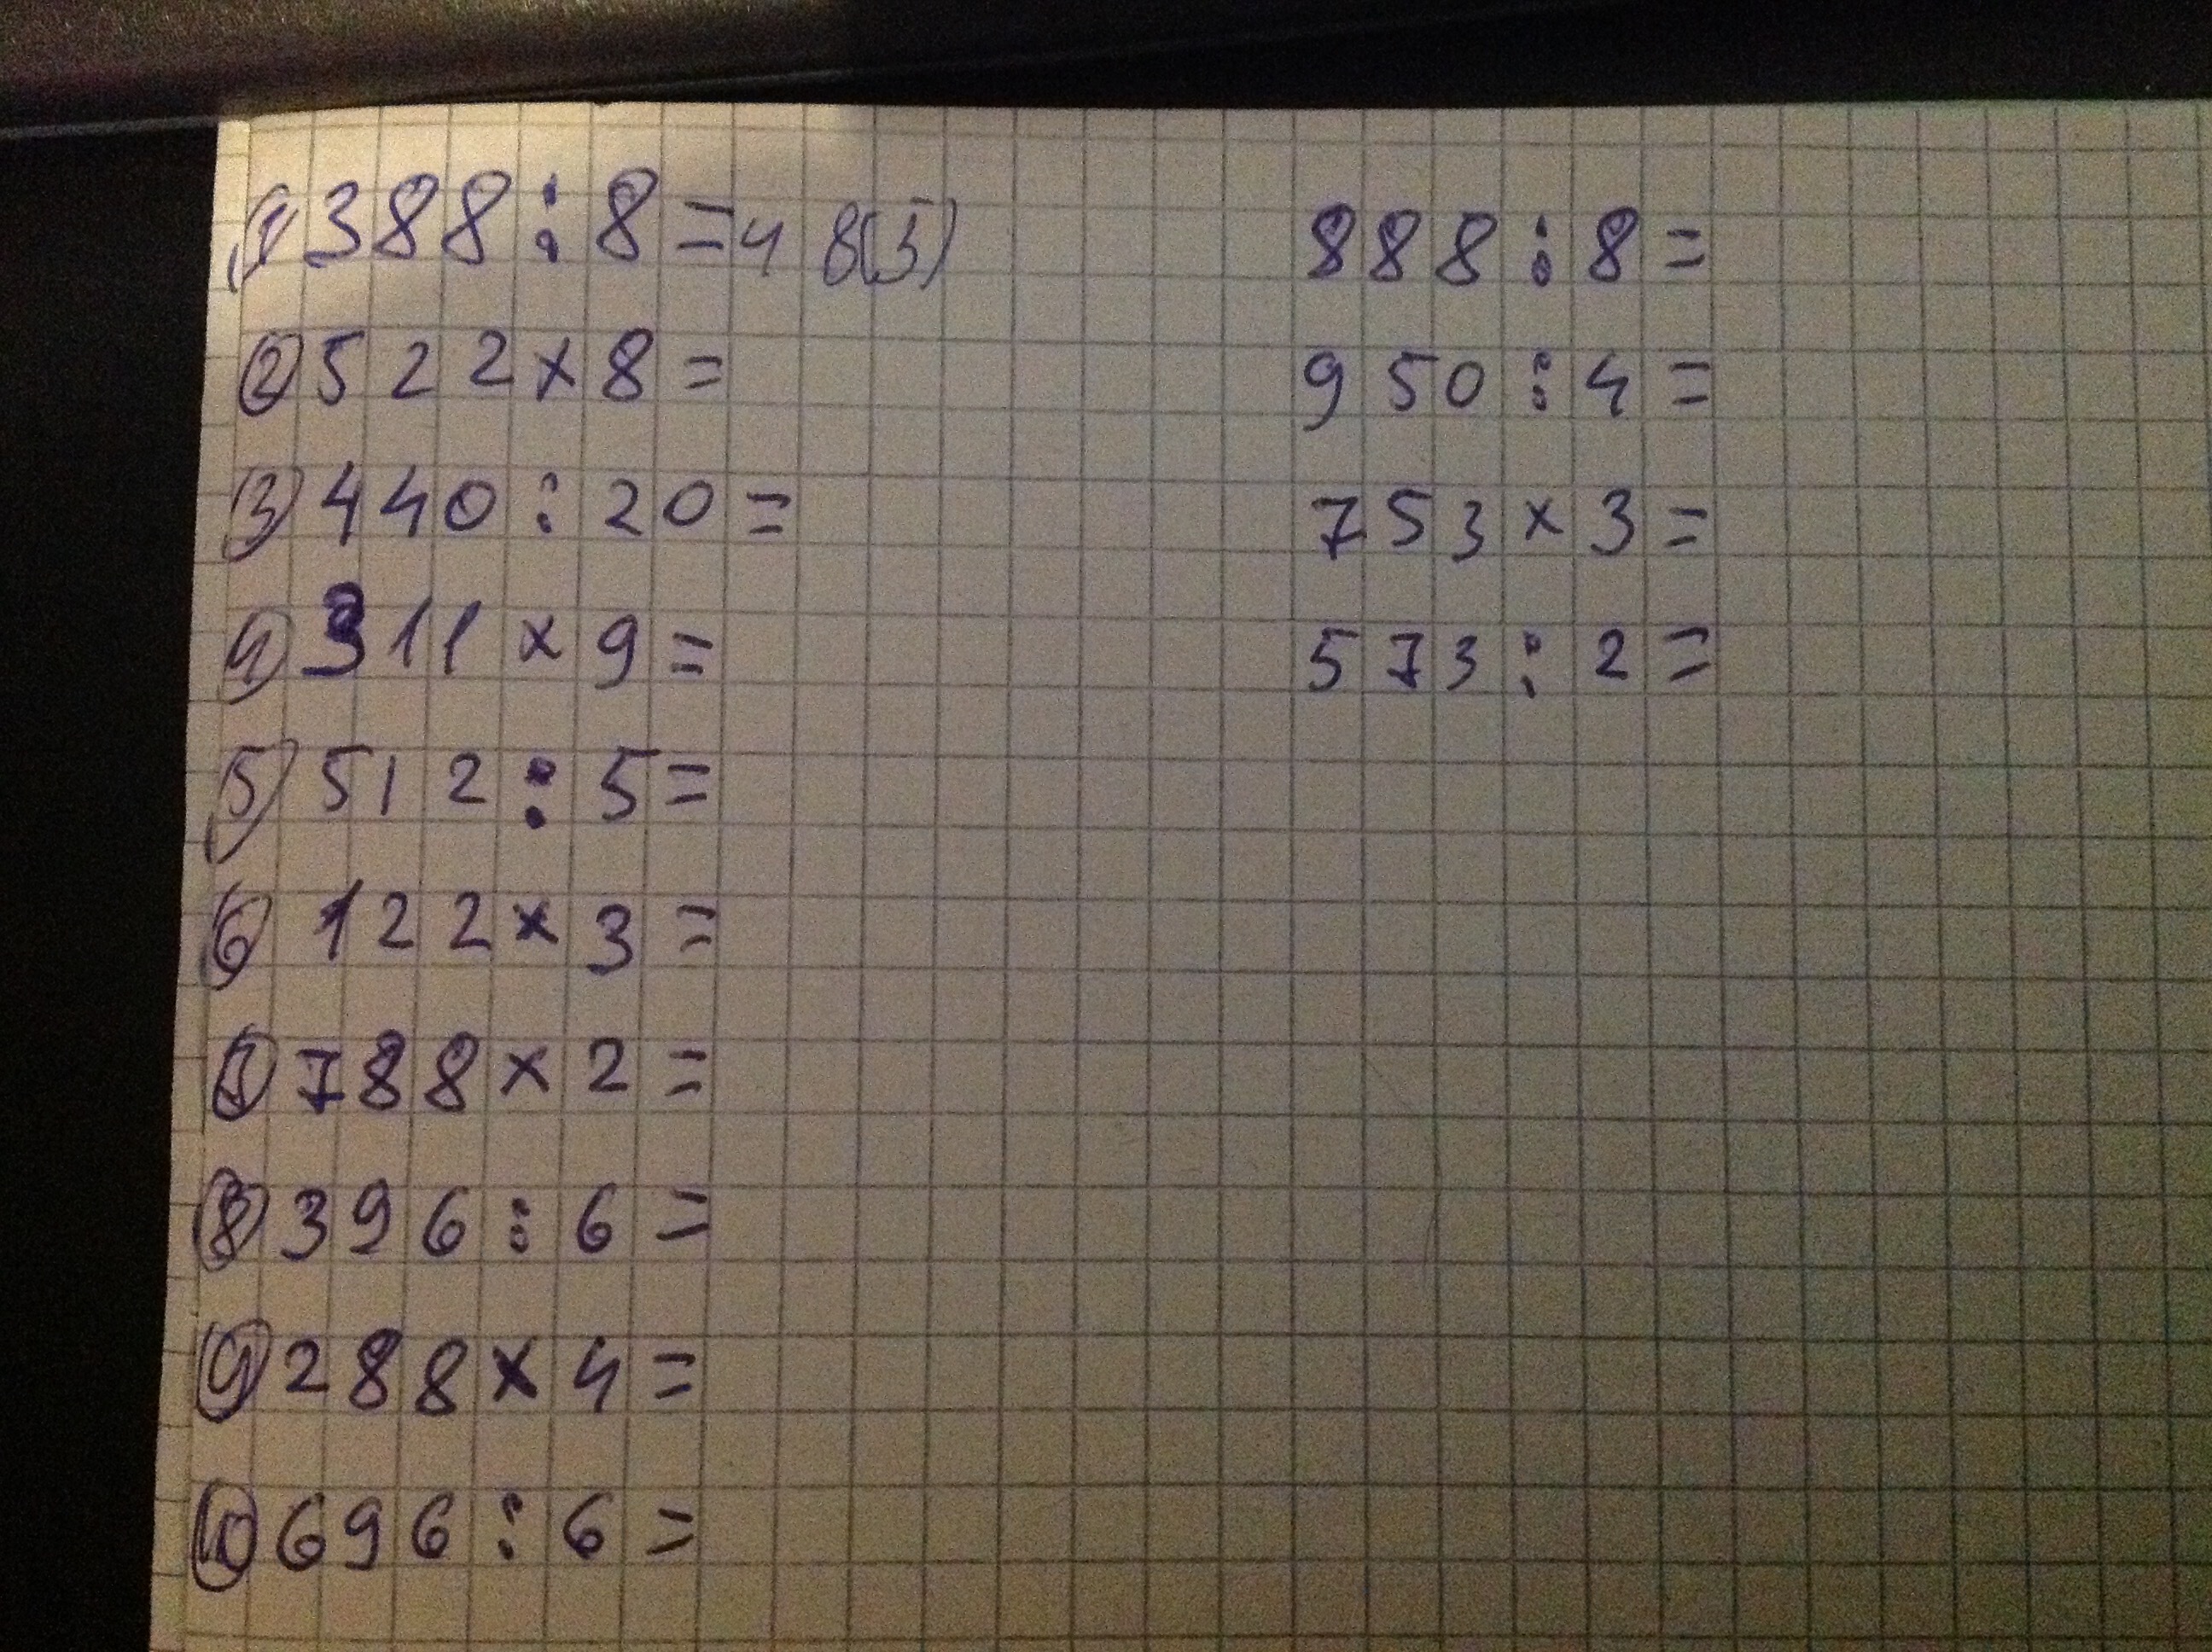 1 388 : 8 = 48(5)
2 522 × 8 =
3 440 : 20 =
4 311 × 9 =
5 512 : 5 =
6 122 × 3 =
7 788 × 2 =
8 396 : 6 =
9 288 × 4 =
10 696 : 6 =
888 : 8 =
950 : 4 =
753 × 3 =
573 : 2 =